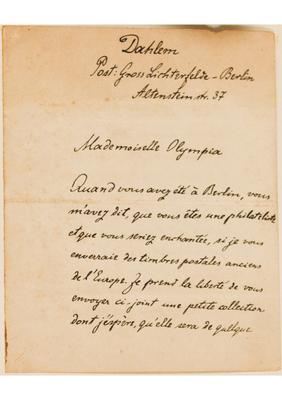 Dahlem
Post: Gross Lichterfelde - Berlin
Altenstein str. 37
Mademoiselle Olympia
Quand vous avez été à Berlin, vous
m'avez dit, que vous êtes une philatéliste
et que vous seriez enchantée, si je vous
enverrais des timbres postales anciens
de l'Europe. Je prend la liberté de vous
envoyer ci-joint une petite collection
dont j'éspère, qu'elle sera de quelque